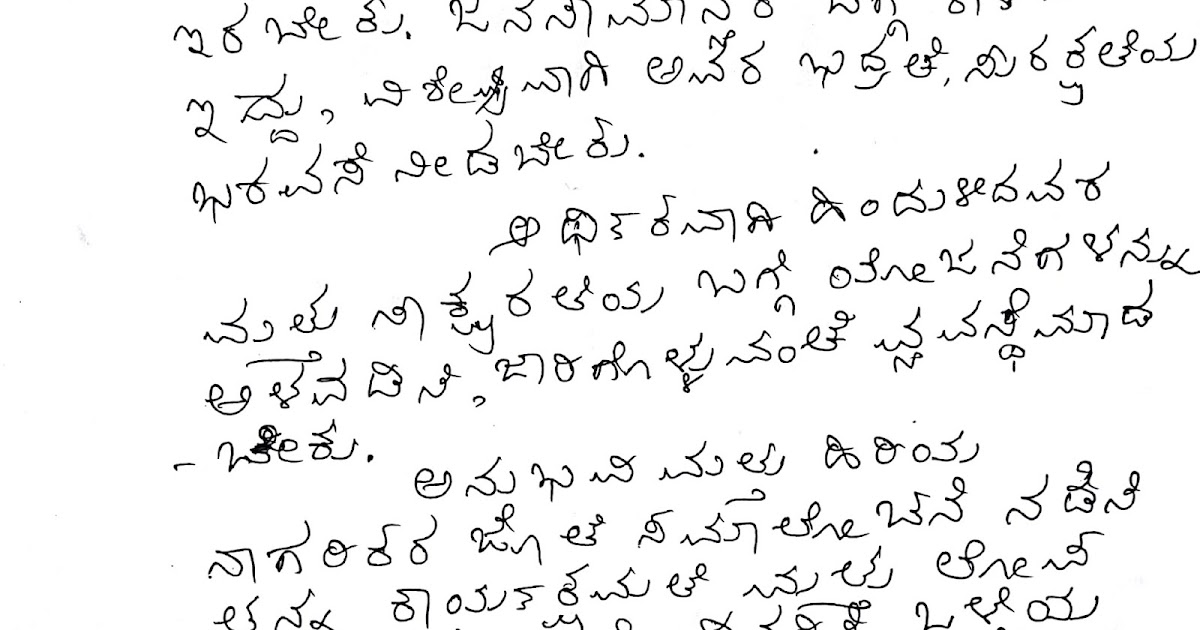 ಇರಬೇಕು. ಜನಸಾಮಾನ್ಯರ ಬಗ್ಗೆ
ಇದ್ದು, ವಿಶೇಷವಾಗಿ ಅವರ ಭದ್ರತೆ, ಸುರಕ್ಷತೆಯ
ಭರವಸೆ ನೀಡಬೇಕು.
ಆರ್ಥಿಕವಾಗಿ ಹಿಂದುಳಿದವರ
ಮತ್ತು ಸಾಕ್ಷರತೆಯ ಬಗ್ಗೆ ಯೋಜನೆಗಳನ್ನು
ಅಳವಡಿಸಿ, ಜಾರಿಗೊಳ್ಳುವಂತೆ ವ್ಯವಸ್ಥೆಮಾಡ
- ಬೇಕು.
ಅನುಭವಿ ಮತ್ತು ಹಿರಿಯ
ನಾಗರಿಕರ ಜೊತೆ ಸಮಾಲೋಚನೆ ನಡೆಸಿ
ತನ್ನ ಕಾರ್ಯಕ್ಷಮತೆ ಮತ್ತು
ಒಳ್ಳೆಯ